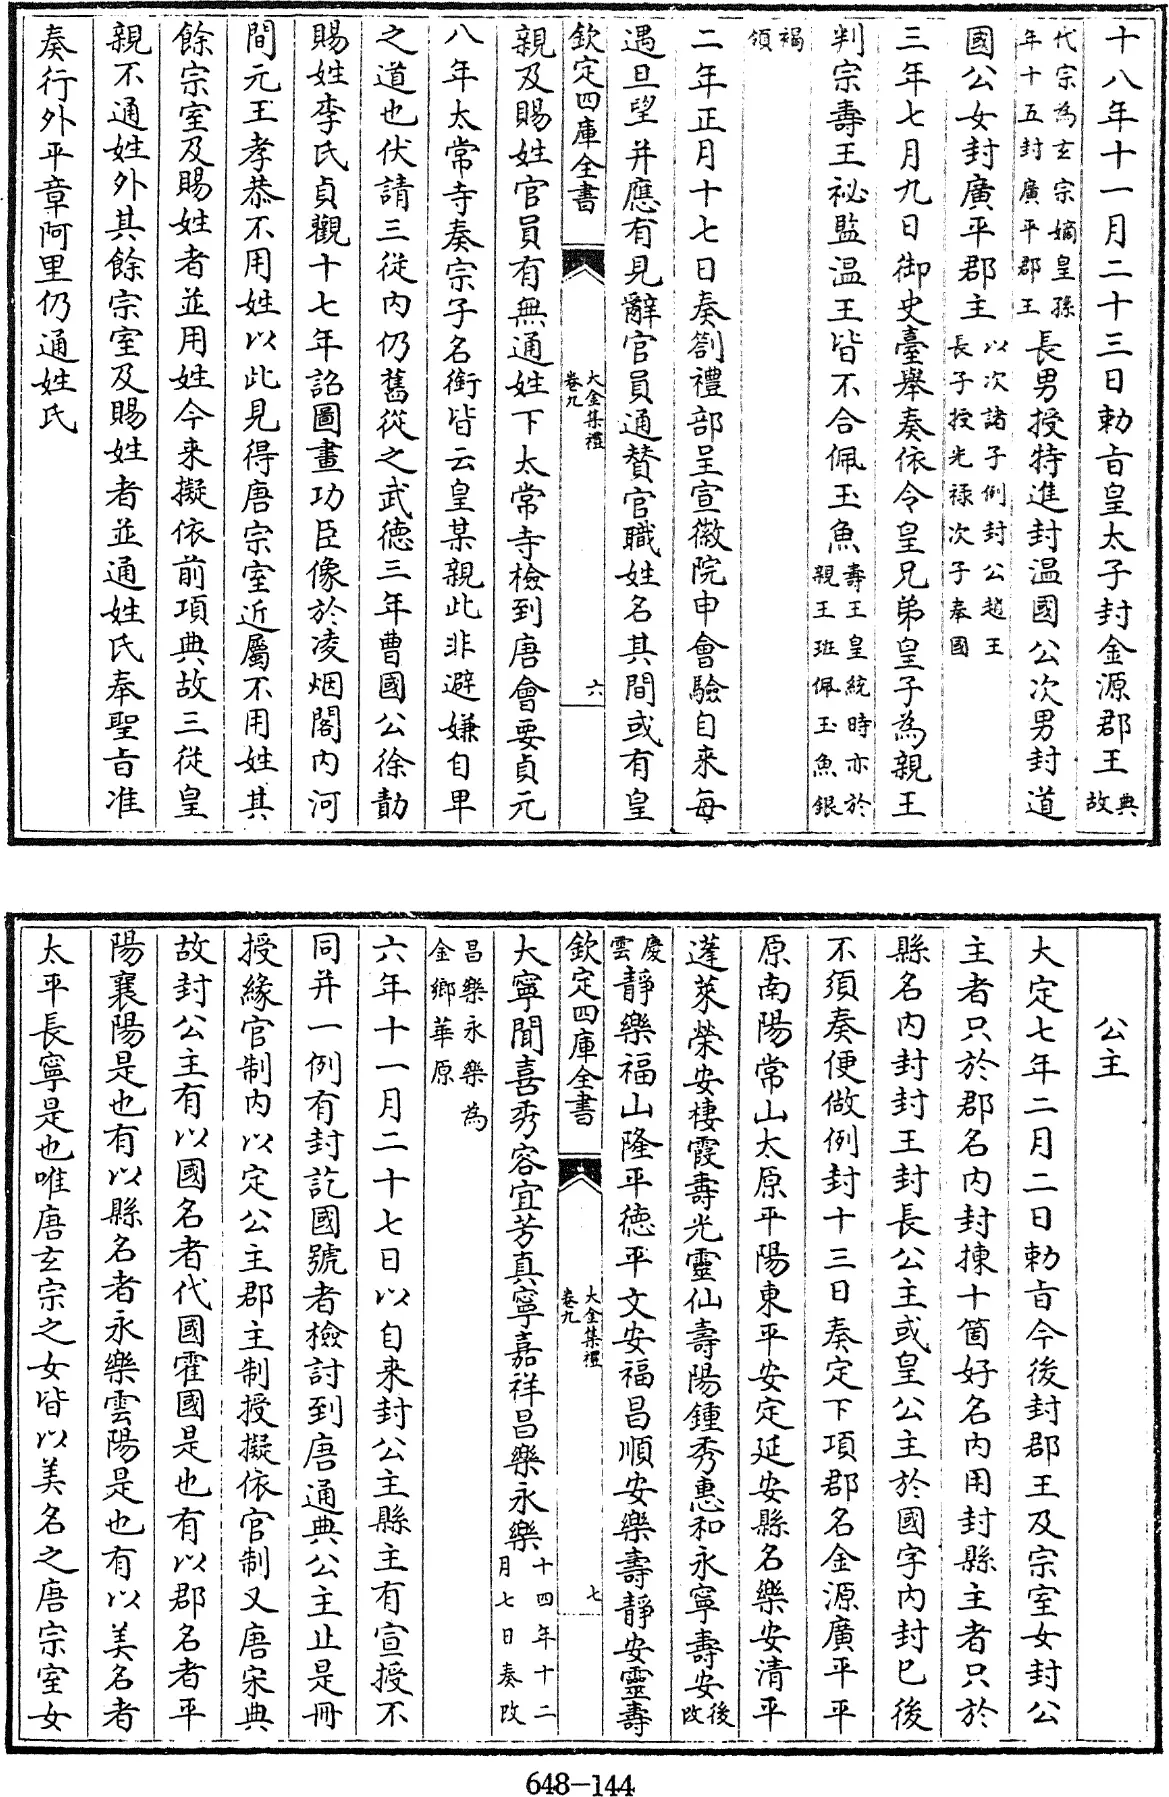 十八年十一月二十三日勅旨皇太子封金源郡王典故
代宗為玄宗嫡皇孫年十五封廣平郡王長男授特進封温國公次男封道
國公女封廣平郡主以次諸子例封公越王長子授光禄次子奉國
三年七月九日御史臺舉奏依令皇兄弟皇子為親王
判宗壽王祕監温王皆不合佩玉魚壽王皇統時亦於親王班佩玉魚銀
褐領
二年正月十七日奏劄禮部呈宣徽院申會驗自来每
遇旦望并應有見辭官員通贊官職姓名其間或有皇
欽定四庫全書
大金集禮
卷九
六
親及賜姓官員有無通姓下太常寺檢到唐會要貞元
八年太常寺奏宗子名銜皆云皇某親此非避嫌自卑
之道也伏請三從内仍舊從之武德三年曹國公徐勣
賜姓李氏貞觀十七年詔圖畫功臣像於凌烟閣内河
間元王孝恭不用姓以此見得唐宗室近屬不用姓其
餘宗室及賜姓者並用姓今来擬依前項典故三從皇
親不通姓外其餘宗室及賜姓者並通姓氏奉聖旨准
奏行外平章阿里仍通姓氏
公主
大定七年二月二日勅旨今後封郡王及宗室女封公
主者只於郡名内封揀十箇好名内用封縣主者只於
縣名内封封王封長公主或皇公主於國字内封已後
不須奏便做例封十三日奏定下項郡名金源廣平平
原南陽常山太原平陽東平安定延安縣名樂安清平
蓬萊榮安棲霞壽光靈仙壽陽鍾秀惠和永寧壽安後改
慶雲靜樂福山隆平德平文安福昌順安樂壽靜安靈壽
欽定四庫全書
大金集禮
卷九
七
大寧聞喜秀容宜芳真寧嘉祥昌樂永樂十四年十二月七日奏改
昌樂永樂為金鄉華原
六年十一月二十七日以自来封公主縣主有宣授不
同并一例有封訖國號者檢討到唐通典公主止是冊
授緣官制内以定公主郡主制授擬依官制又唐宋典
故封公主有以國名者代國霍國是也有以郡名者平
陽襄陽是也有以縣名者永樂雲陽是也有以美名者
太平長寧是也唯唐玄宗之女皆以美名之唐宗室女
648-144